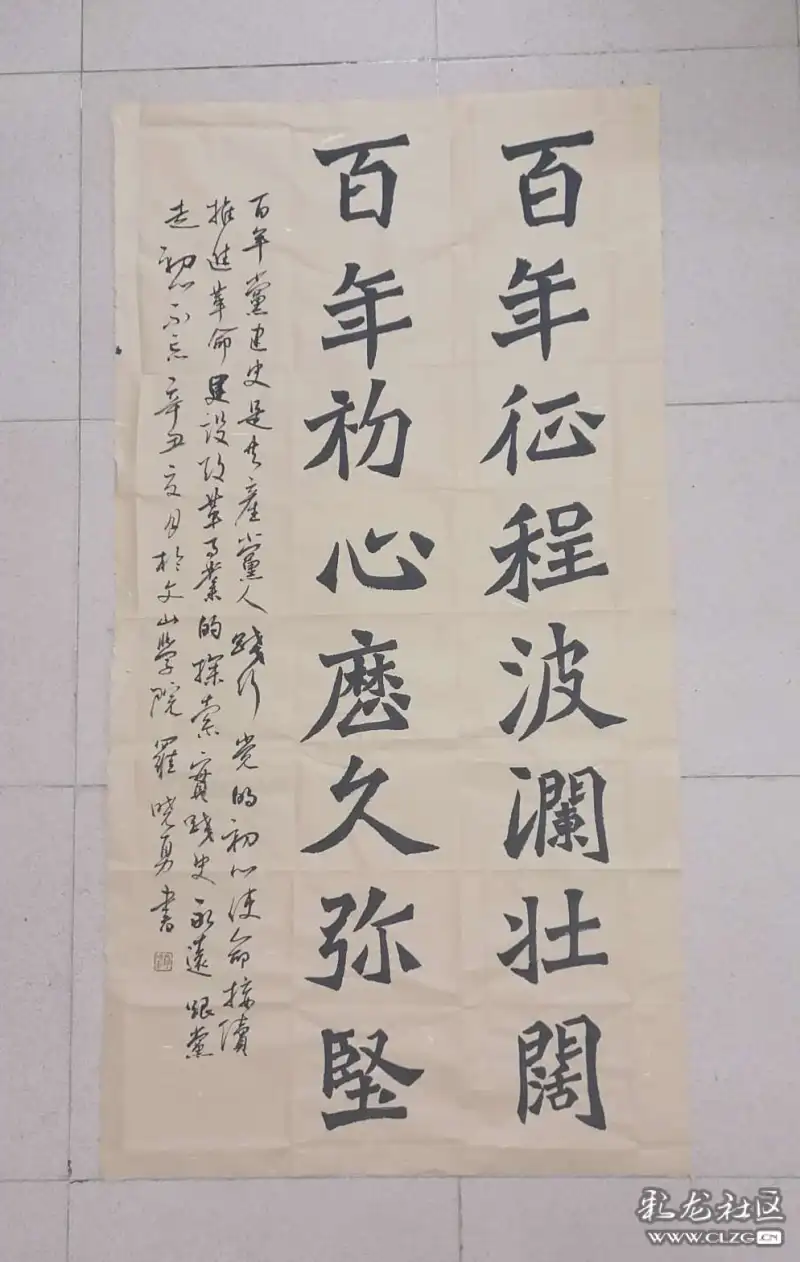 百年征程波瀾壮闊
百年初心歷久弥堅
百年黨建史是共產黨人踐行党的初心使命接續
推進革命建設改革事業的探索實踐史永遠跟黨
走初心不忘辛丑夏月於文山學院羅晓勇書
彩龙社区
WWW.CLZG.CN